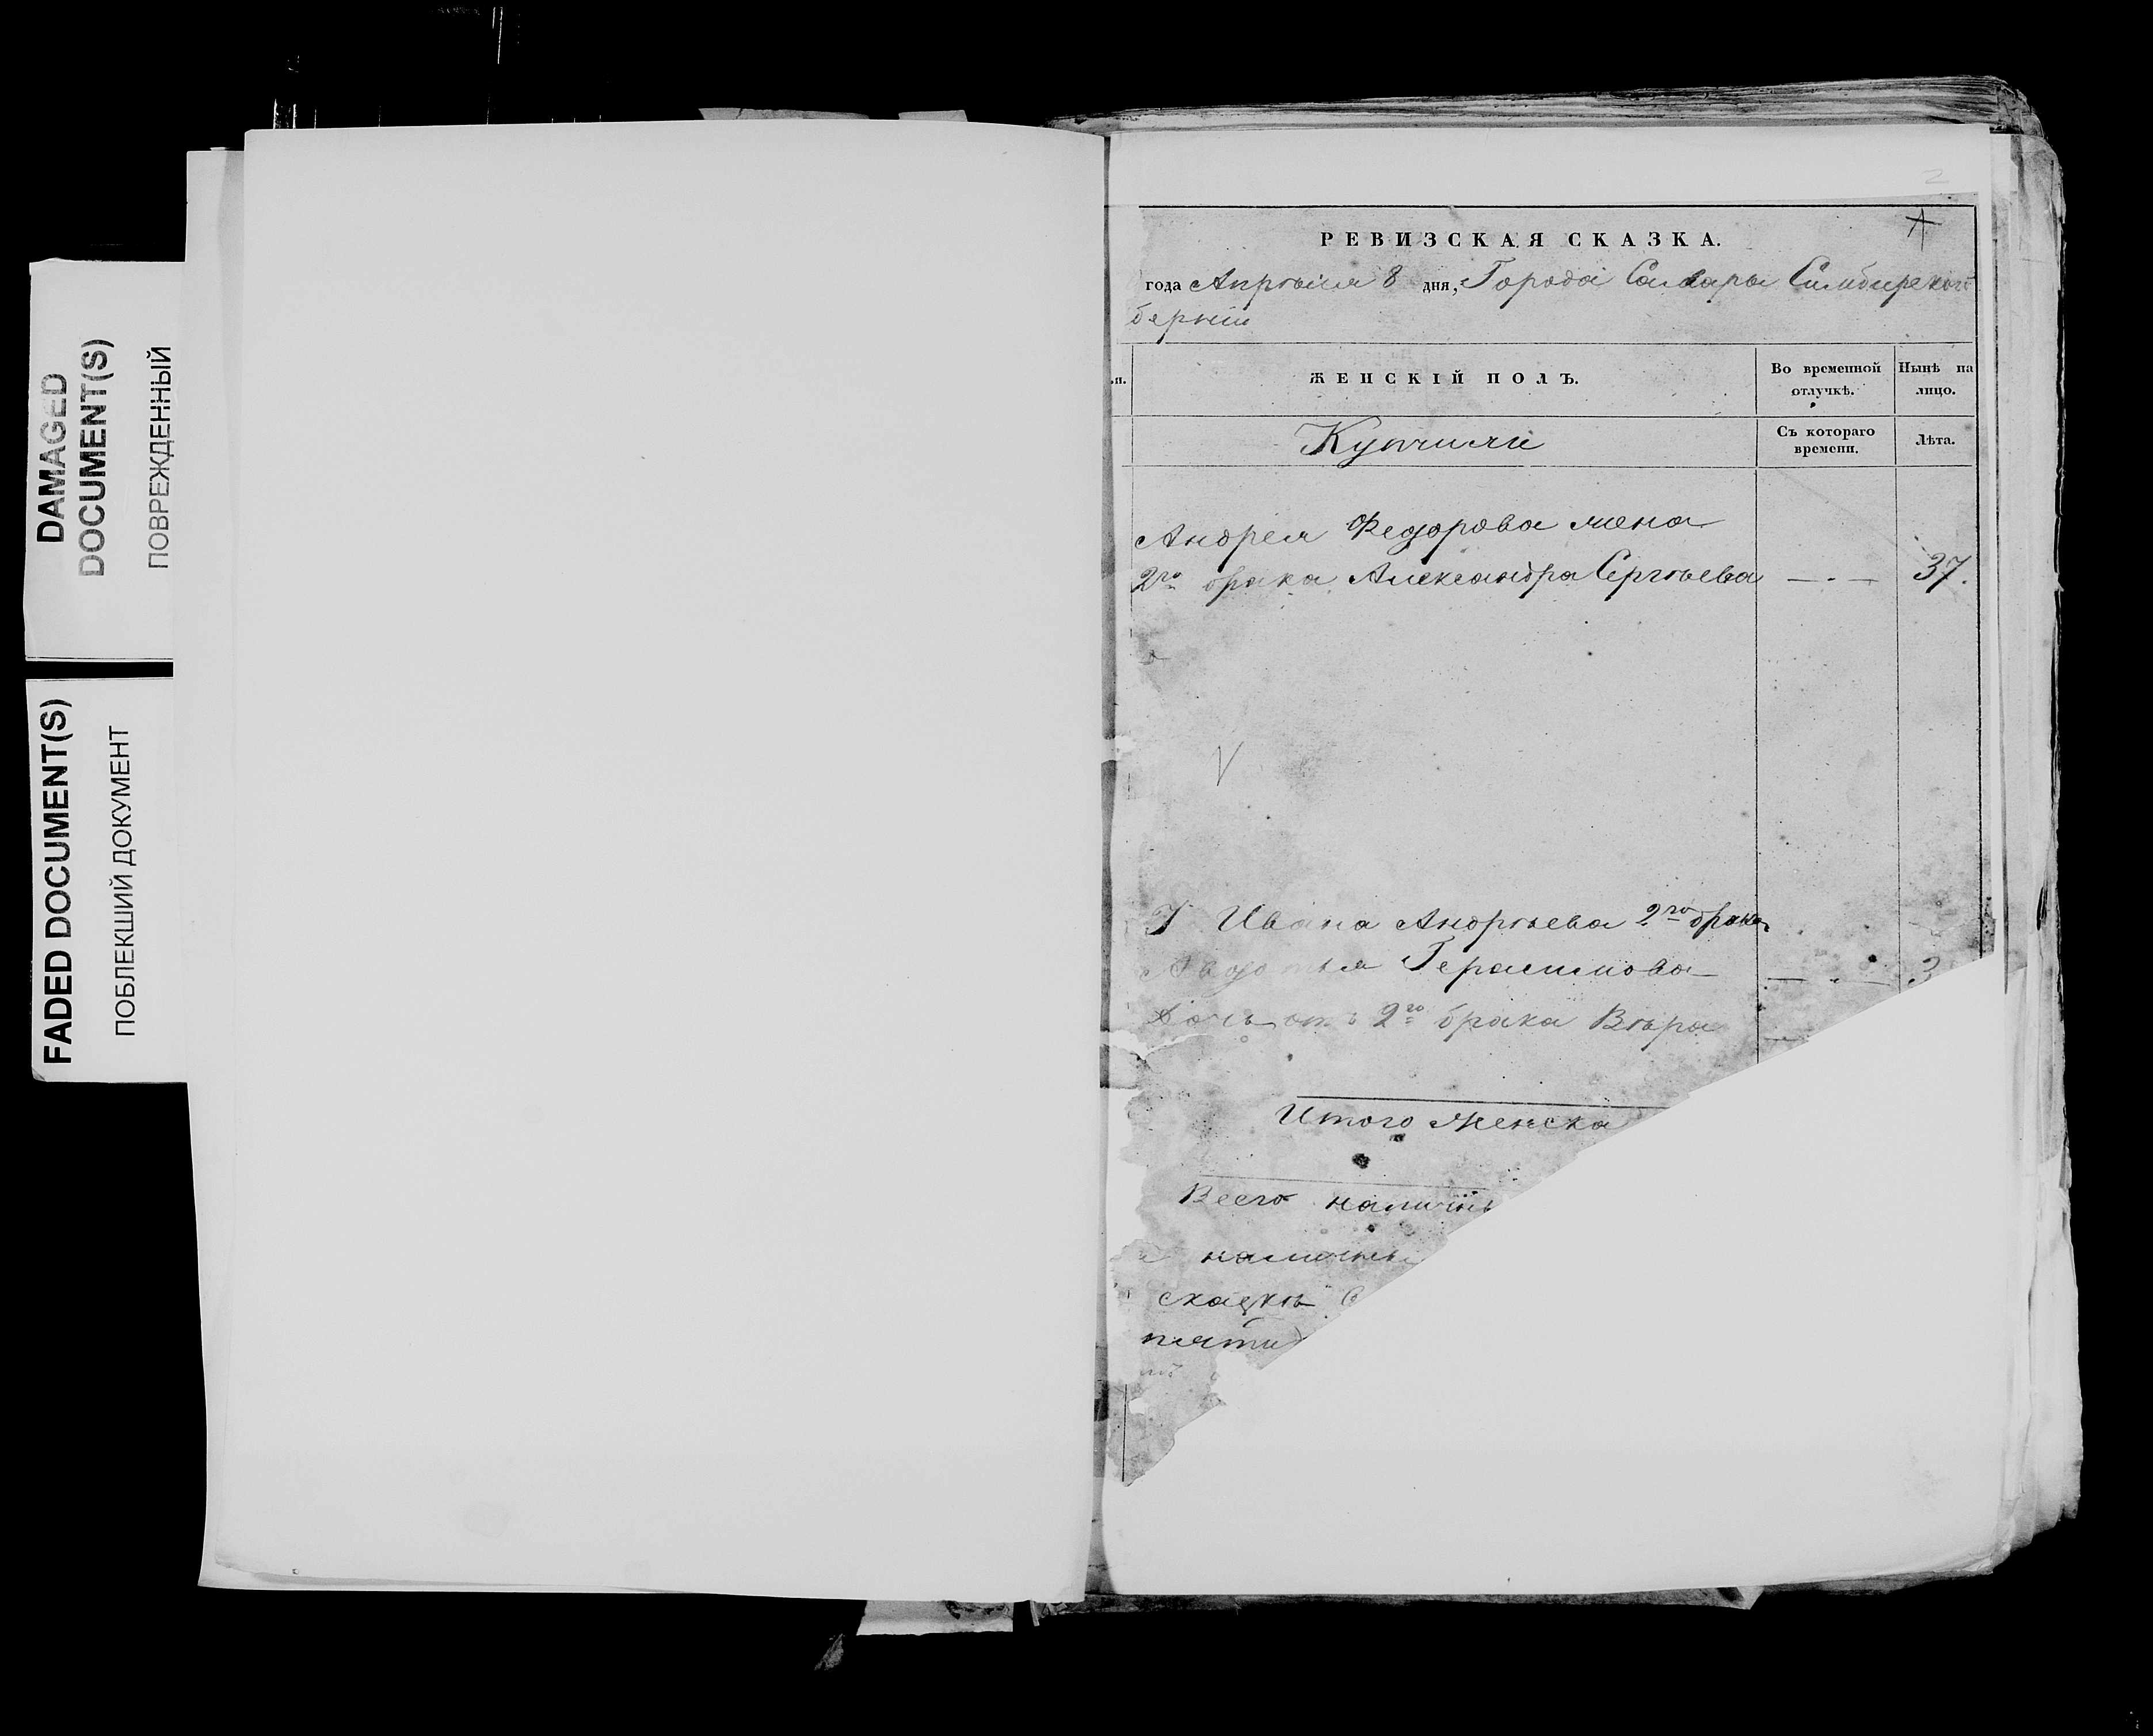 DAMAGED
DOCUMENT(S)
ПОВРЕЖДЕННЫЙ
FADED DOCUMENT(S)
ПОБЛЕКШИЙ ДОКУМЕНТ
2
РЕВИЗСКАЯ СКАЗКА.
года Апрѣля 8 дня, Города Самары Симбирской
берніи
ЖЕНСКІЙ ПОЛЪ.
Во временной отлучкѣ.
Нынѣ на лицо.
Съ котораго времени.
Лѣта.
Андрея Федорова жена
2го брака Александра Сергѣева — . — 37.
У Ивана Андрѣева 2го брака
Авдотья Герасимова — 3
Дочь отъ 2го брака Вѣра
Итого женска
Всего наличн
наличн
сказкѣ
пяти